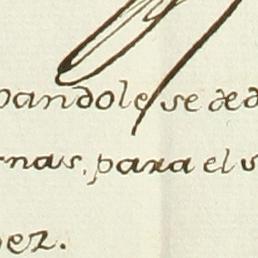 pandole se ded
rnas, para el s
pez.